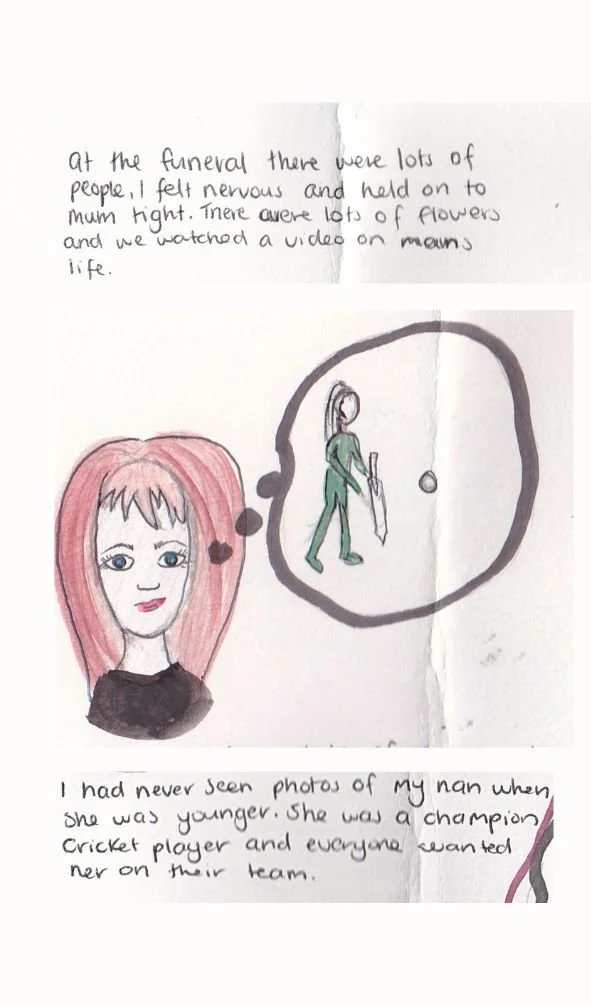 At the funeral there were lots of
people, I felt nervous and held on to
Mum tight. There were lots of flowers
and we watched a video on nans
life.
I had never seen photos of my nan when
she was younger. She was a champion
Cricket player and everyone wanted
her on their team.